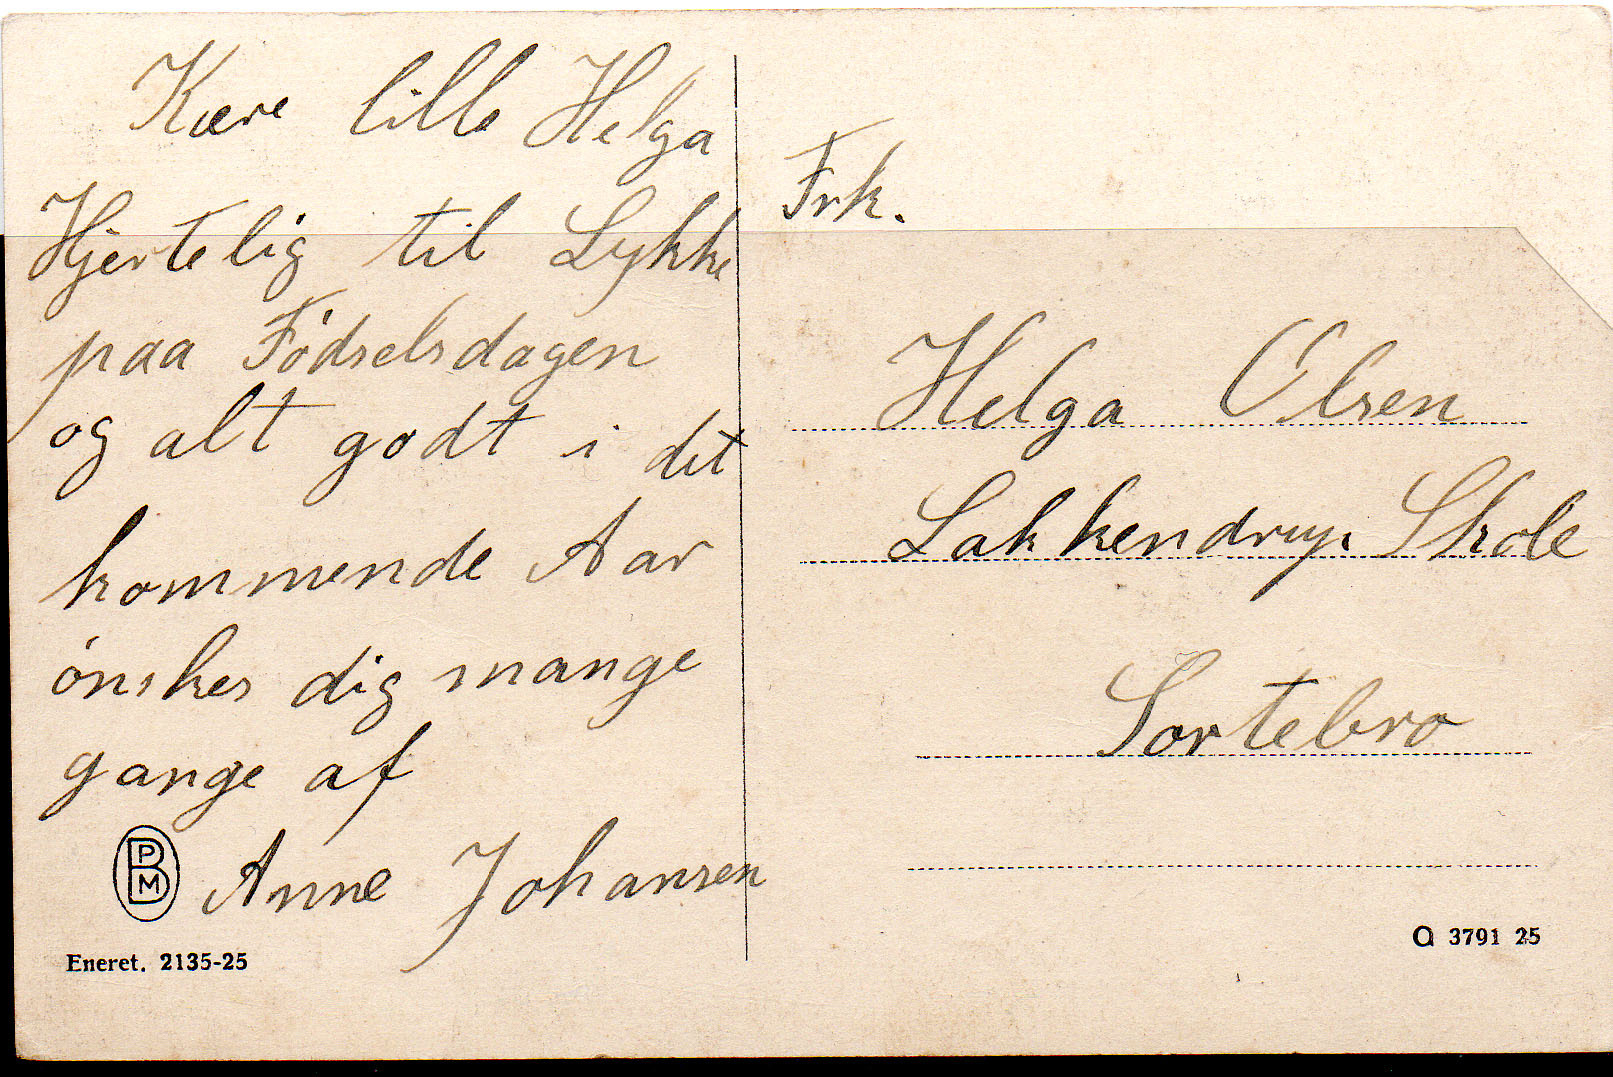 Kære lille Helga
Hjertelig til Lykke
paa Födselsdagen
og alt godt i det
kommende Aar
önskes dig mange
gange af
Anne Johansen
BPM
Eneret. 2135-25
Frk.
Helga Olsen
Lakkendrup Skole
Sortebro
Q 3791 25